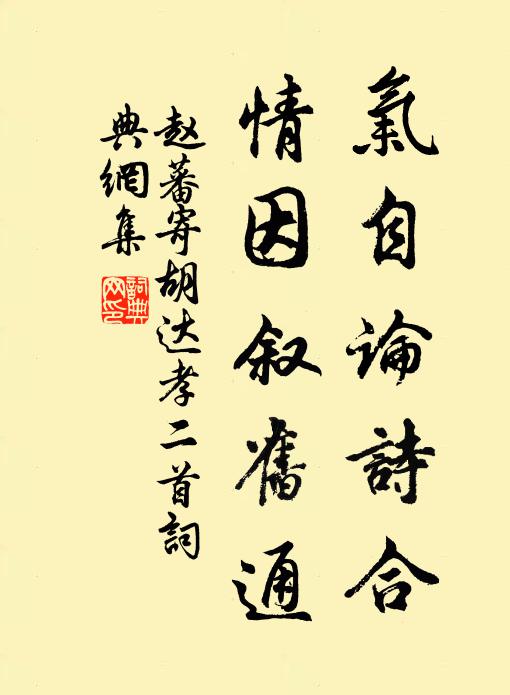 氣自論詩合
情因叙舊通
赵蕃寄胡达孝二首詞
典網集
詞典
网印